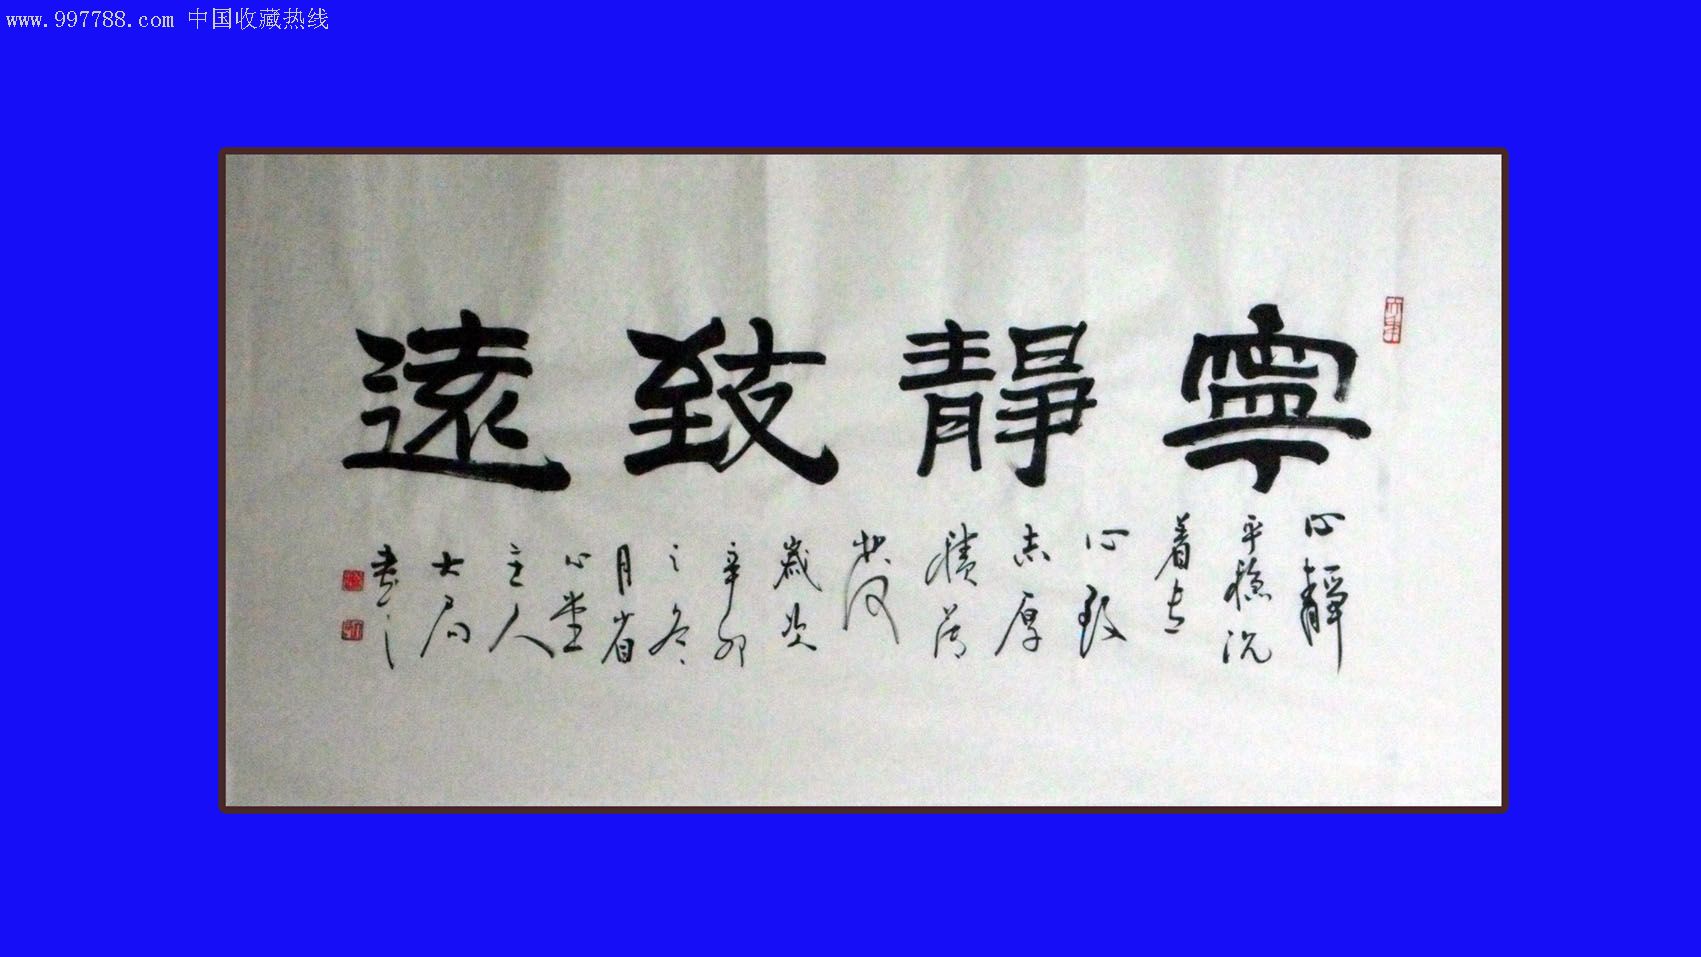 www.997788.com 中国收藏热线
寧靜致遠
心靜
平稳沉
着志
心致
志厚
積薄
發
歲次
辛卯
之冬
月省
心堂
主人
大居
書之